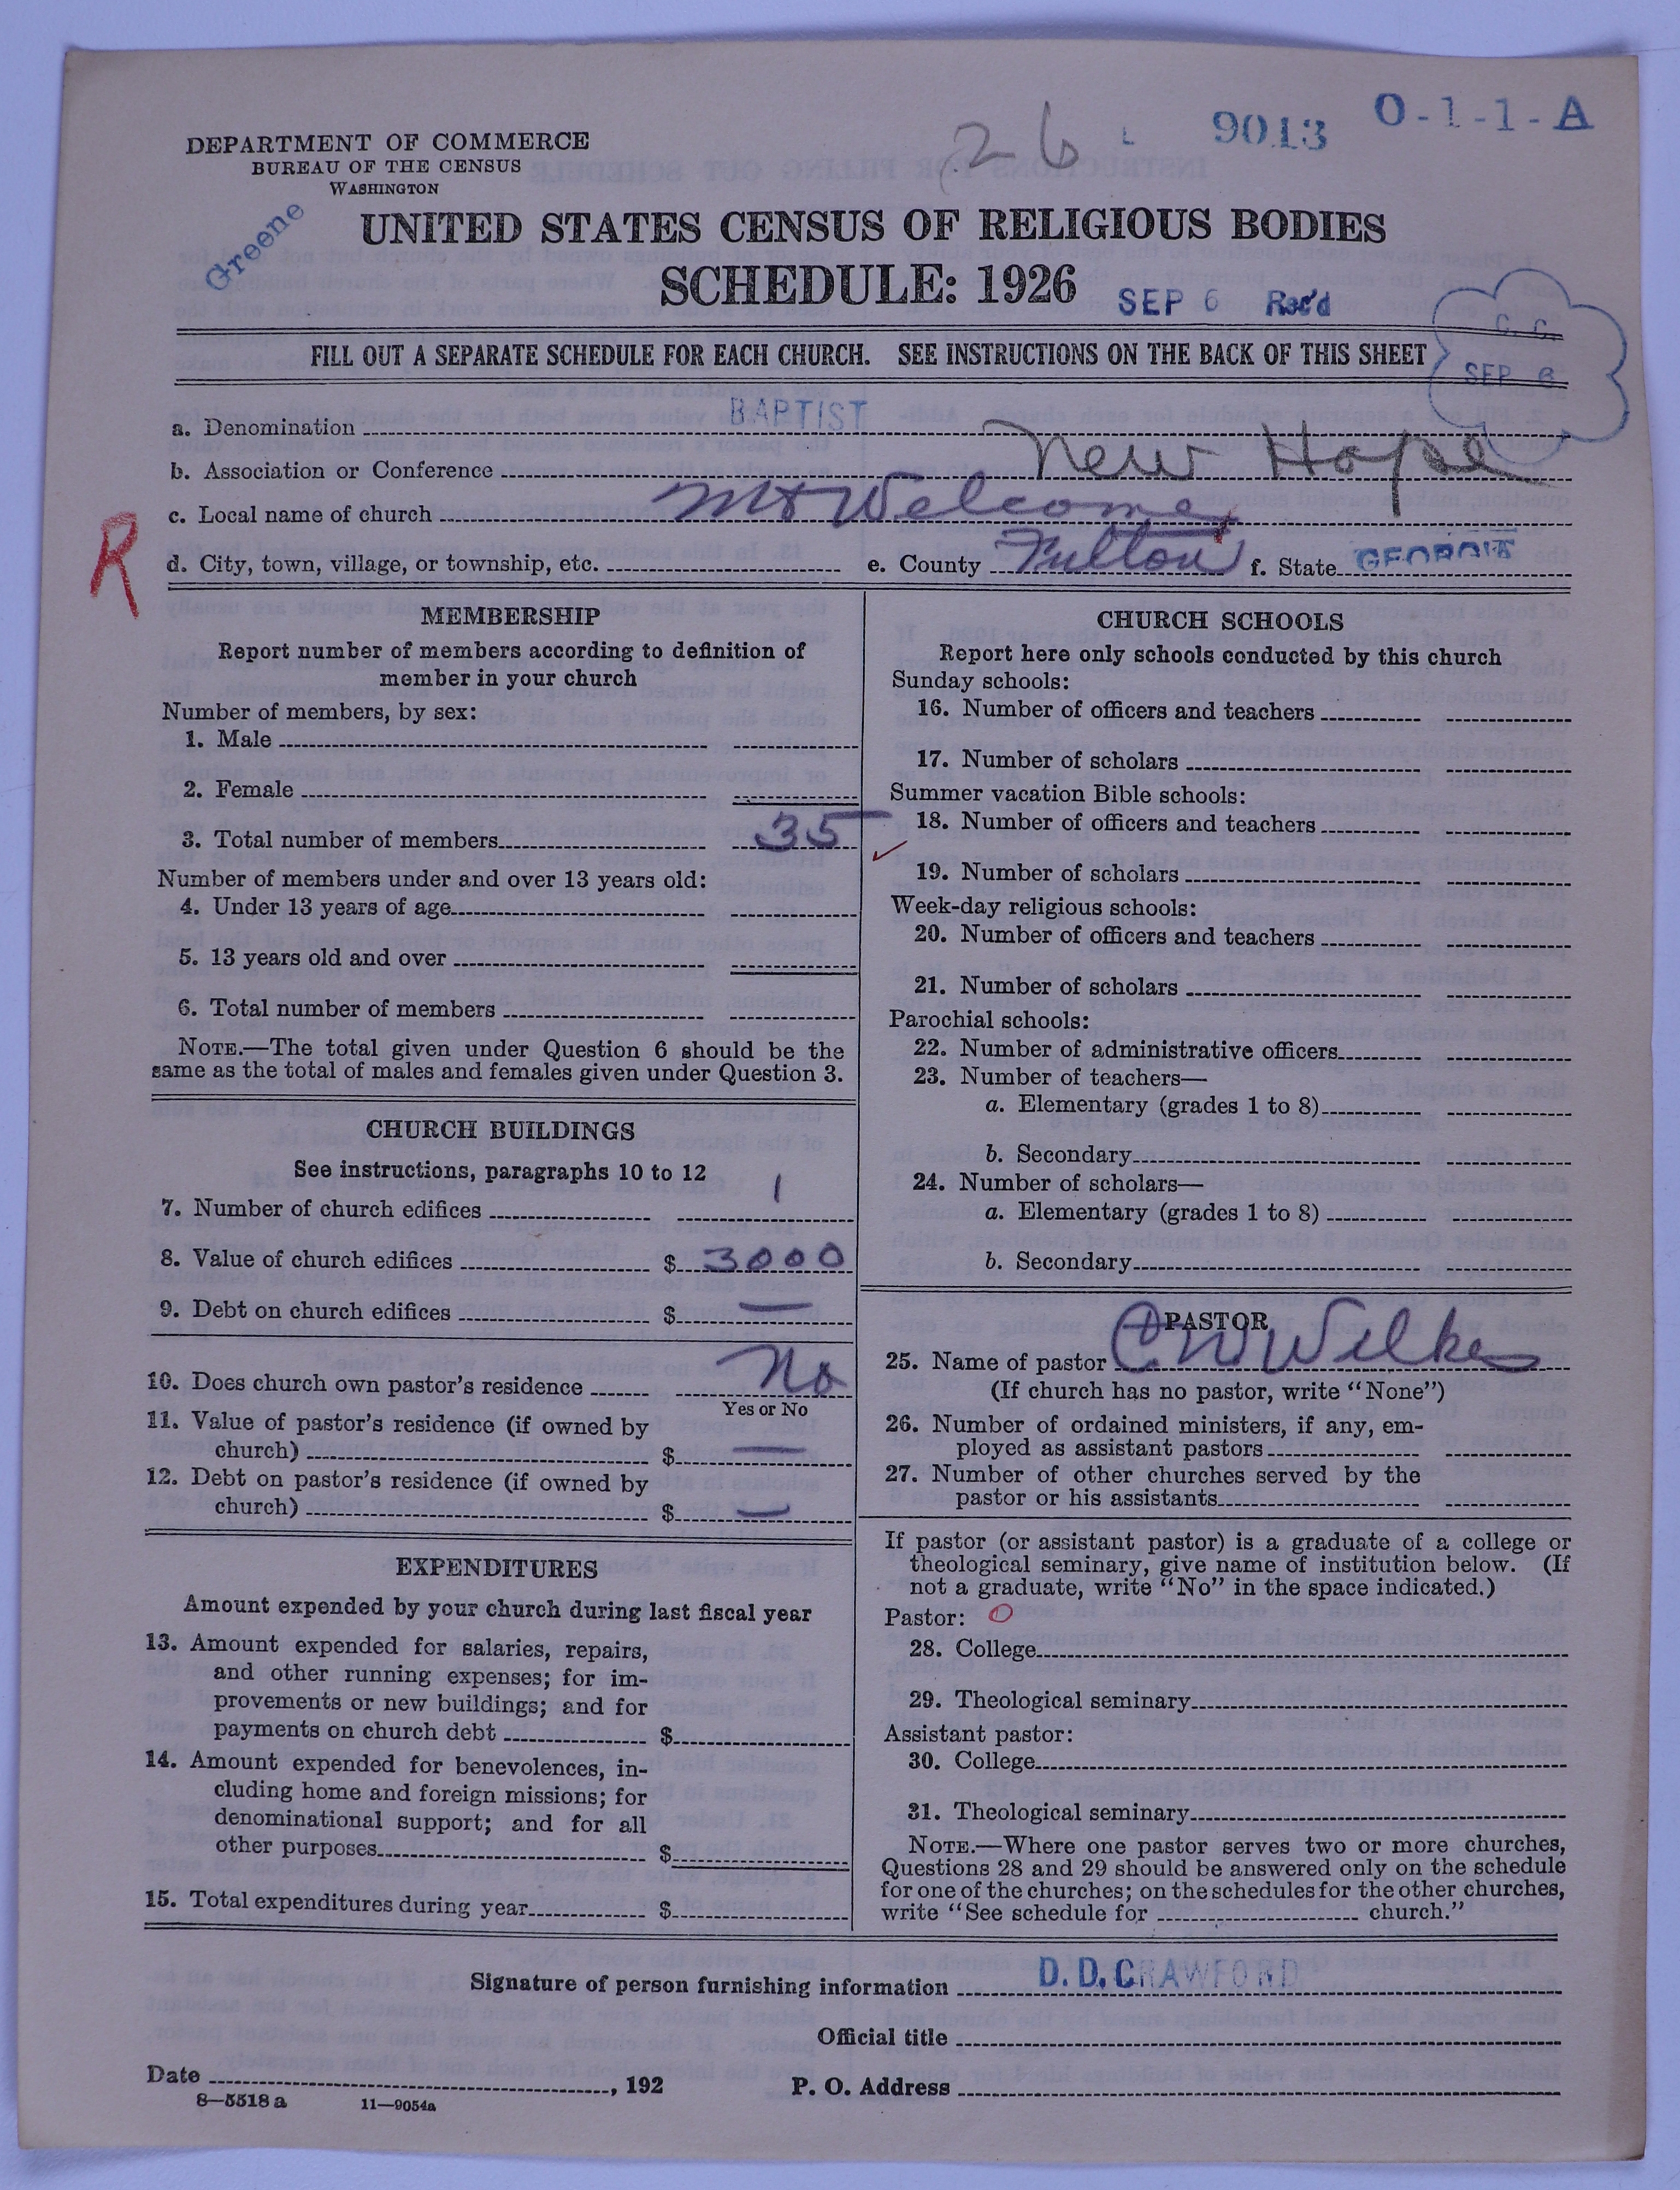 26 L 9013 O-1-1-A
DEPARTMENT OF COMMERCE
BUREAU OF THE CENSUS
WASHINGTON
Greene
UNITED STATES CENSUS OF RELIGIOUS BODIES
SCHEDULE: 1926
SEP 6 Rec'd
C. C.
SEP 6
FILL OUT A SEPARATE SCHEDULE FOR EACH CHURCH. SEE INSTRUCTIONS ON THE BACK OF THIS SHEET
a. Denomination BAPTIST
b. Association or Conference New Hope
c. Local name of church Mt Welcome
R
d. City, town, village, or township, etc. e. County Fulton f. State GEORGIA
MEMBERSHIP
Report number of members according to definition of
member in your church
Number of members, by sex:
1. Male
2. Female
3. Total number of members 35
Number of members under and over 13 years old:
4. Under 13 years of age
5. 13 years old and over
6. Total number of members
NOTE.—The total given under Question 6 should be the
same as the total of males and females given under Question 3.
CHURCH BUILDINGS
See instructions, paragraphs 10 to 12
7. Number of church edifices 1
8. Value of church edifices $ 3000
9. Debt on church edifices $ —
10. Does church own pastor's residence No
Yes or No
11. Value of pastor's residence (if owned by
church) $ —
12. Debt on pastor's residence (if owned by
church) $ —
EXPENDITURES
Amount expended by your church during last fiscal year
13. Amount expended for salaries, repairs,
and other running expenses; for im-
provements or new buildings; and for
payments on church debt $
14. Amount expended for benevolences, in-
cluding home and foreign missions; for
denominational support; and for all
other purposes $
15. Total expenditures during year $
CHURCH SCHOOLS
Report here only schools conducted by this church
Sunday schools:
16. Number of officers and teachers
17. Number of scholars
Summer vacation Bible schools:
18. Number of officers and teachers
19. Number of scholars
Week-day religious schools:
20. Number of officers and teachers
21. Number of scholars
Parochial schools:
22. Number of administrative officers
23. Number of teachers—
a. Elementary (grades 1 to 8)
b. Secondary
24. Number of scholars—
a. Elementary (grades 1 to 8)
b. Secondary
PASTOR
25. Name of pastor C W Wilkes
(If church has no pastor, write "None")
26. Number of ordained ministers, if any, em-
ployed as assistant pastors
27. Number of other churches served by the
pastor or his assistants
If pastor (or assistant pastor) is a graduate of a college or
theological seminary, give name of institution below. (If
not a graduate, write "No" in the space indicated.)
Pastor: O
28. College
29. Theological seminary
Assistant pastor:
30. College
31. Theological seminary
NOTE.—Where one pastor serves two or more churches,
Questions 28 and 29 should be answered only on the schedule
for one of the churches; on the schedules for the other churches,
write "See schedule for church."
Signature of person furnishing information D. D. CRAWFORD
Official title
Date , 192 P. O. Address
8—5518 a 11—9054a